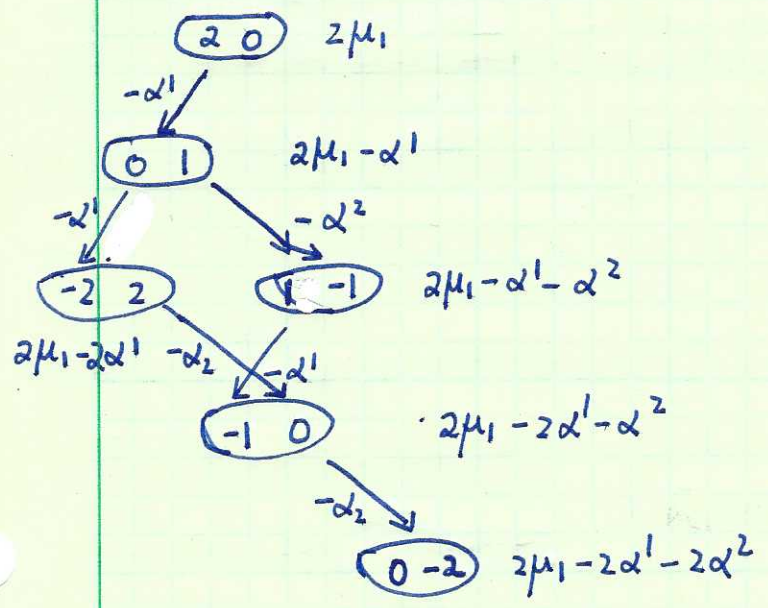 2 0 2μ₁
-α¹
0 1 2μ₁ - α¹
-α¹ -α²
-2 2 1 -1 2μ₁ - α¹ - α²
2μ₁ - 2α¹ -α₂ -α¹
-1 0 2μ₁ - 2α¹ - α²
-α₂
0 -2 2μ₁ - 2α¹ - 2α²